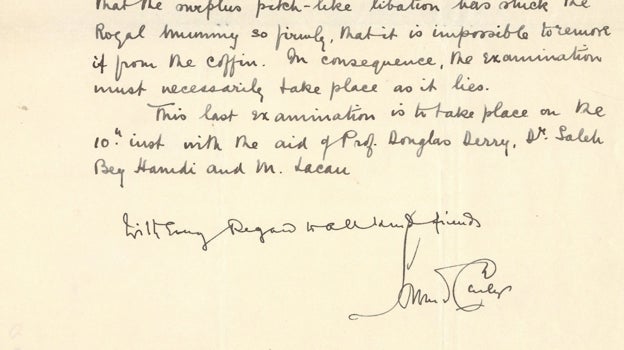 that the surplus pitch-like libation has stuck the
Royal Mummy so firmly, that it is impossible to remove
it from the coffin. In consequence, the examination
must necessarily take place as it lies.
This last examination is to take place on the
10th inst with the aid of Prof. Douglas Derry, Dr. Saleh
Bey Hamdi and M. Lacau
With every Regard to all friends
Howard Carter